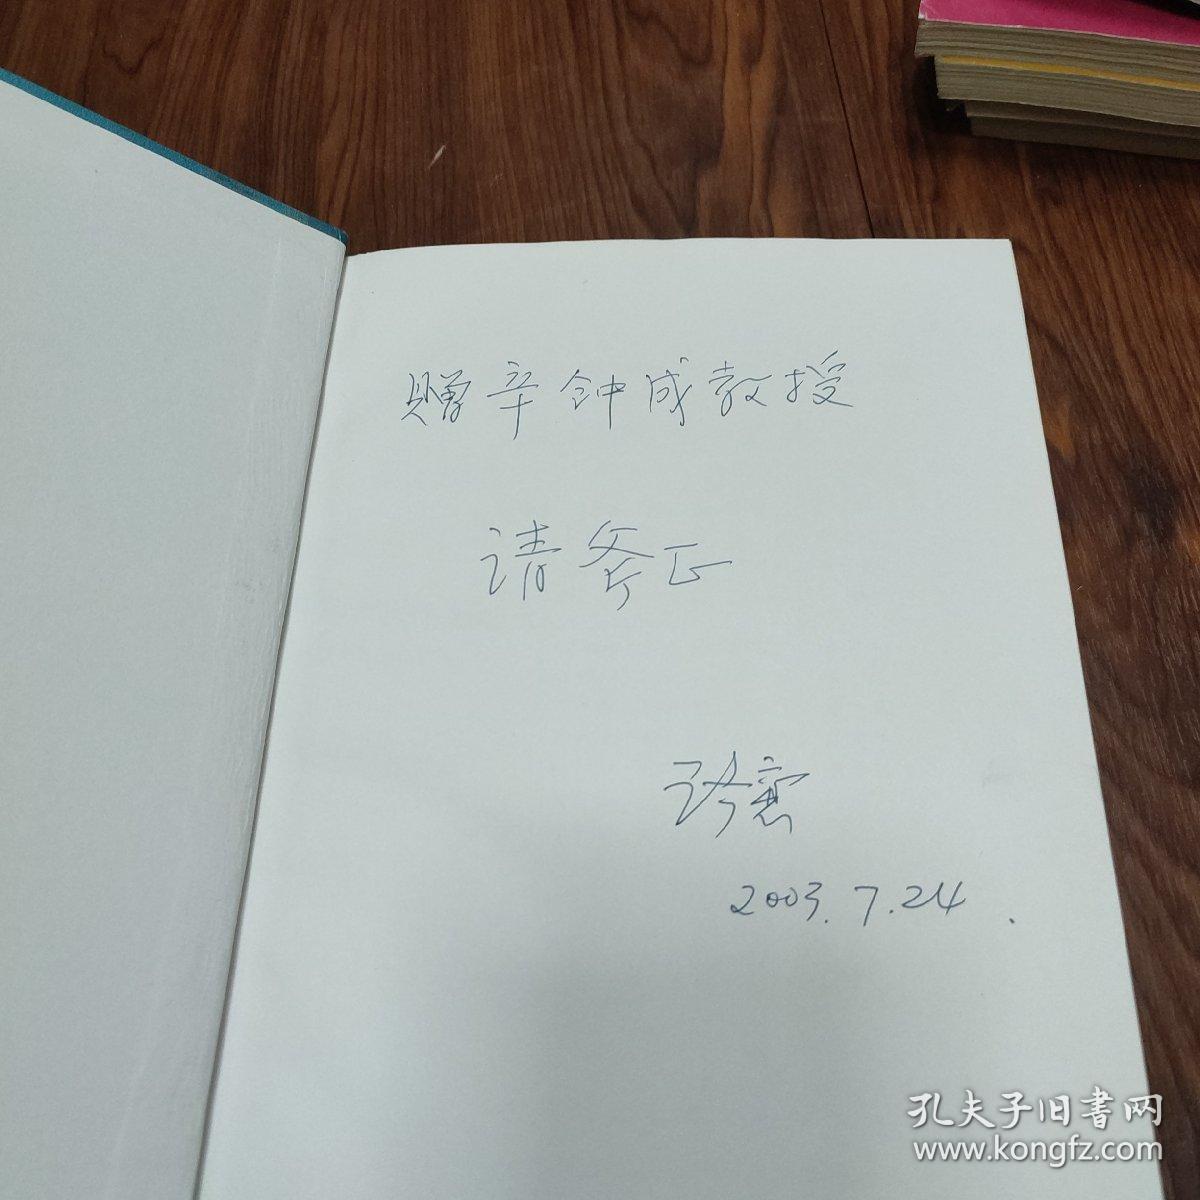 赠辛钟成教授
请斧正
2003.7.24.
孔夫子旧书网
www.kongfz.com